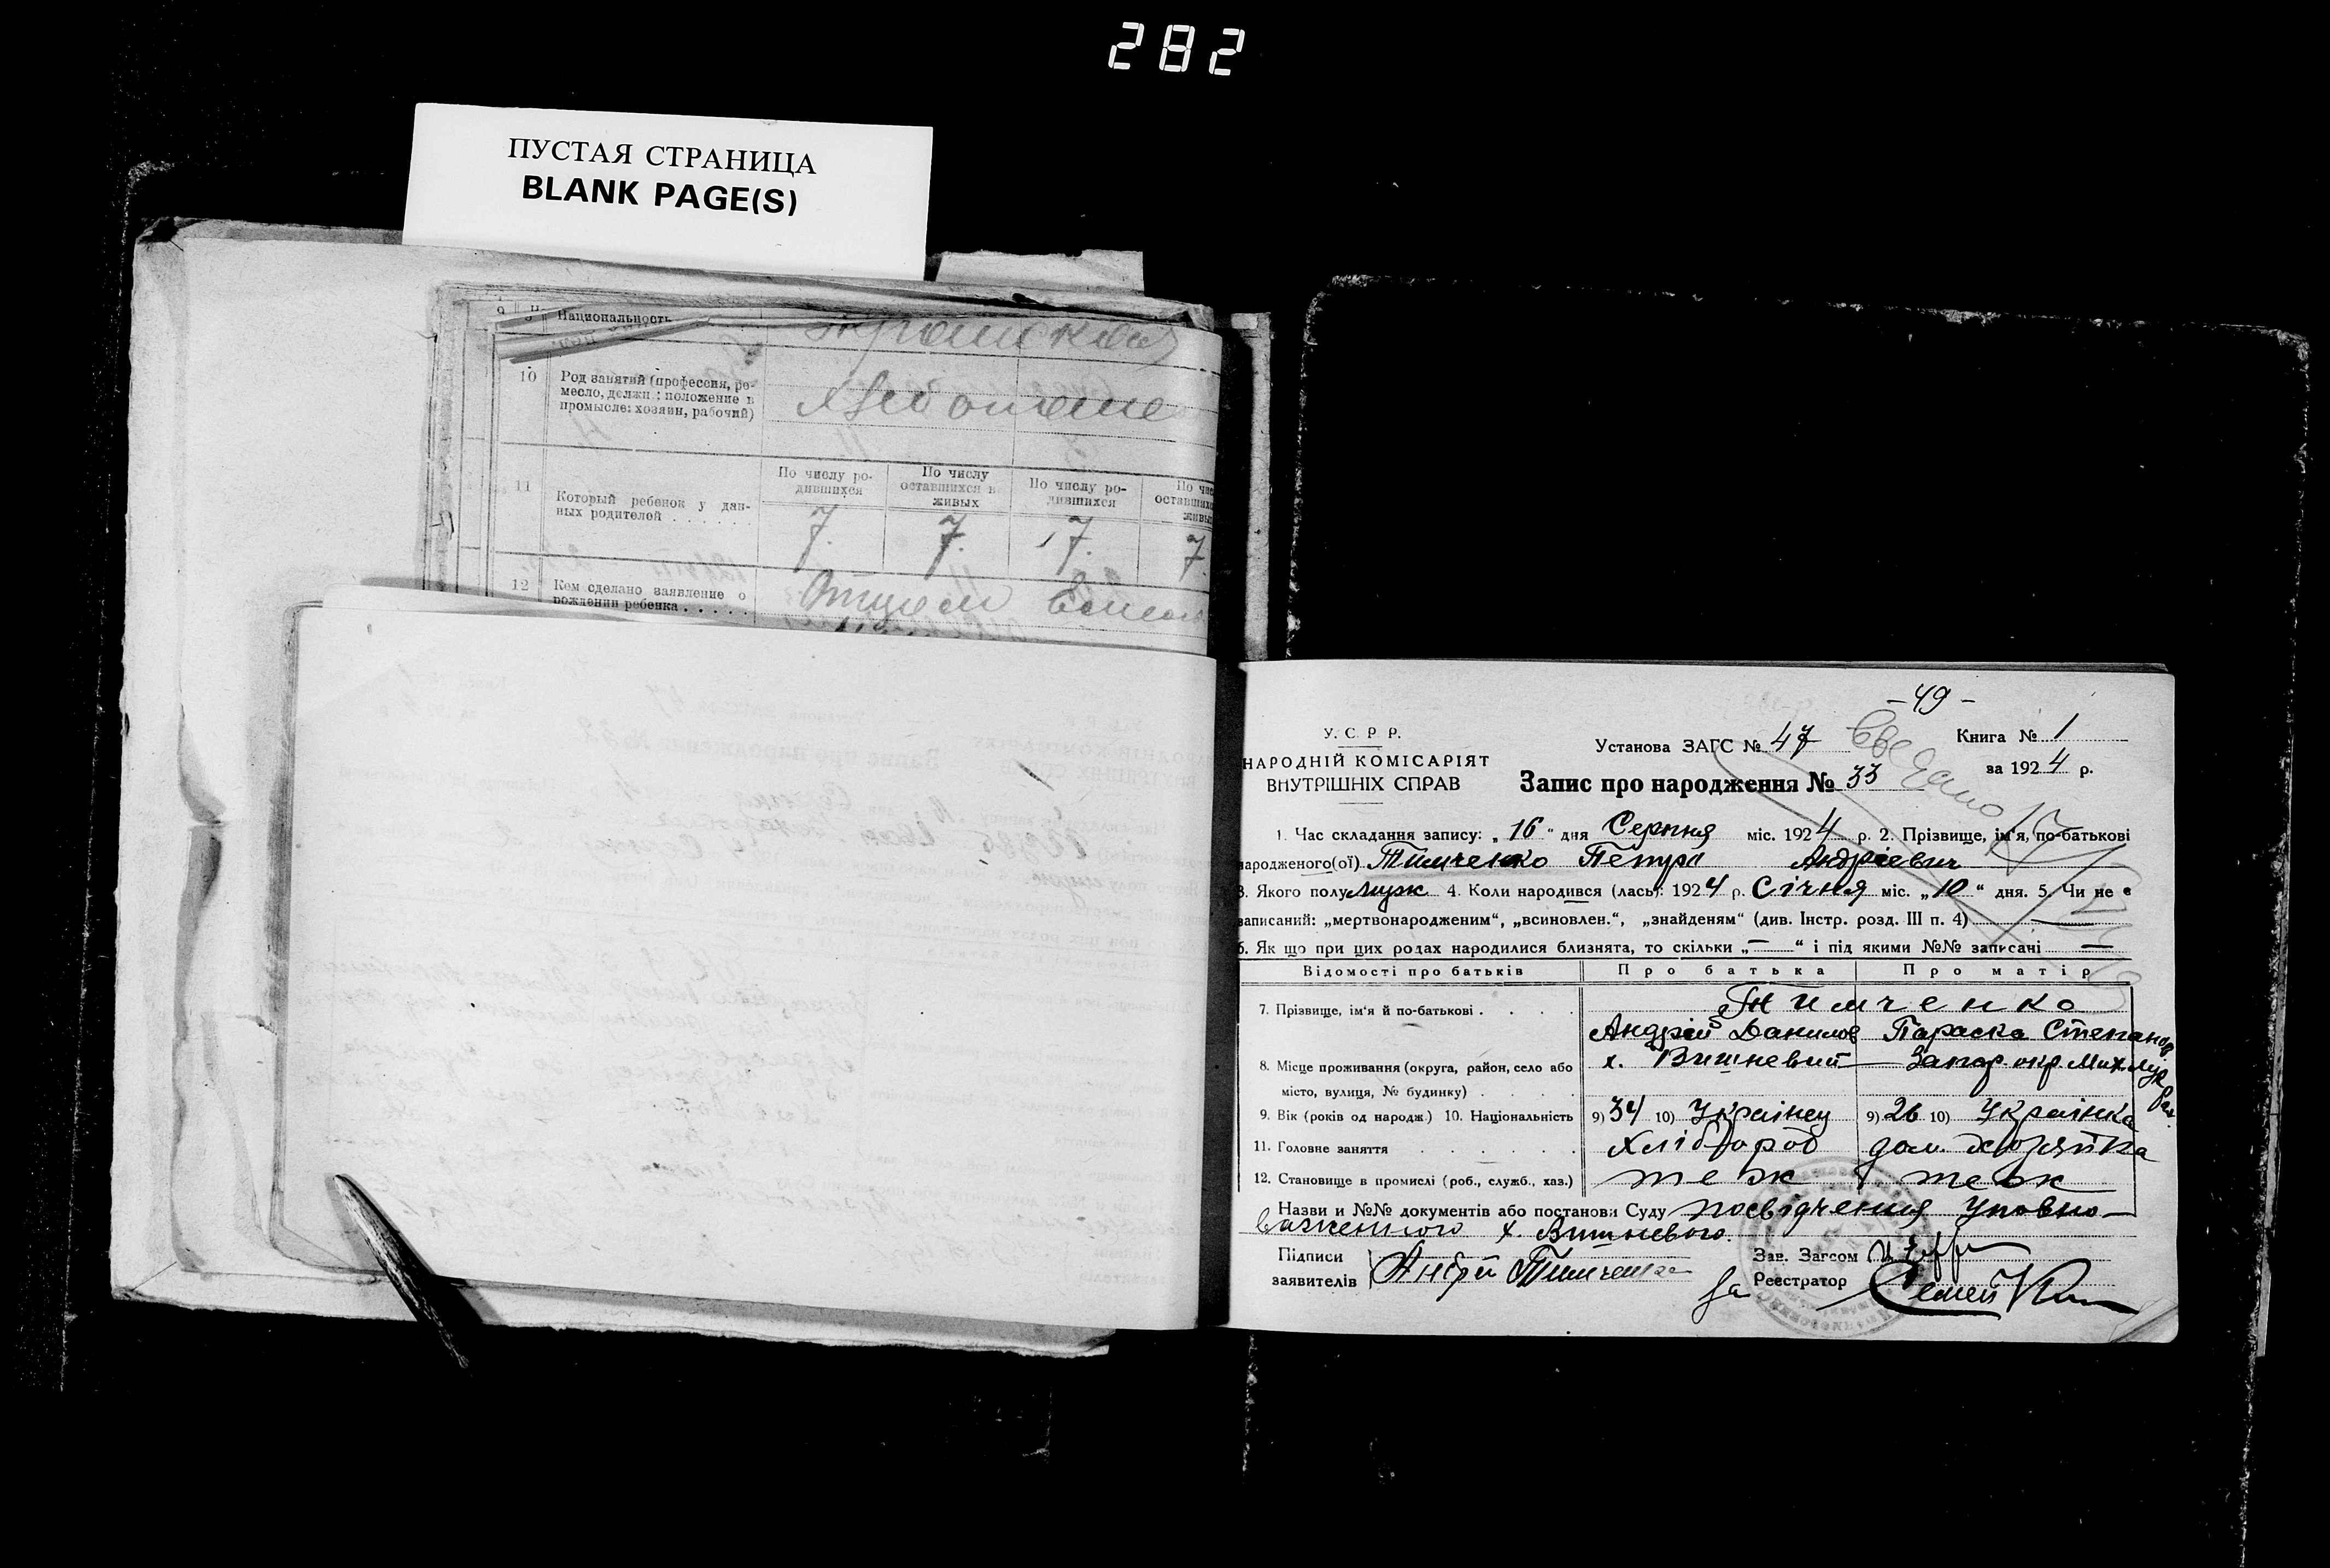 282
ПУСТАЯ СТРАНИЦА
BLANK PAGE(S)
Национальность
10 Род занятий (профессия, ре-
месло, должн.: положение в
промысле: хозяин, рабочий)
11 Который ребенок у дан-
ных родителей . . . . . .
По числу ро-
дившихся
По числу
оставшихся в
живых
По числу ро-
дившихся
По чис
оставшихс
живы
7. 7. 7. 7.
12 Кем сделано заявление о
рождении ребенка . . . . .
Отцем
- 49 -
У. С. Р. Р.
НАРОДНІЙ КОМІСАРІЯТ
ВНУТРІШНІХ СПРАВ
Установа ЗАГС № 47
Книга № 1
за 1924 р.
Запис про народження № 33
1. Час складання запису: „16“ дня Серпня міс. 1924 р. 2. Прізвище, ім'я, по-батькові
народженого(ої) Тимченко Петра Андріевич
3. Якого полу муж. 4. Коли народився (лась): 1924 р. Січня міс. „10“ дня. 5. Чи не є
записаний: „мертвонародженим“, „всиновлен.“, „знайденям“ (див. Інстр. розд. III п. 4) —
6. Як що при цих родах народилися близнята, то скільки „—“ і під якими №№ записані —
Відомості про батьків Про батька Про матір
7. Прізвище, ім'я й по-батькові . . . . Тимченко
Андрій Данилов Параска Степанов
8. Місце проживання (округа, район, село або
місто, вулиця, № будинку) . . . .
х. Вишневий — Запор. окр. Мих. Лук
Рай.
9. Вік (років од народж.) 10. Національність 9) 34 10) Українец 9) 26 10) Українка
11. Головне заняття . . . . . . Хлібороб дом. хозяйка
12. Становище в промислі (роб., служб., хаз.) теж теж
Назви и №№ документів або постанови Суду посвідчення Уповно-
важенного х. Вишневого.
Підписи
заявителів Андрій Тимченко
Зав. Загсом
За Реєстратор Семен